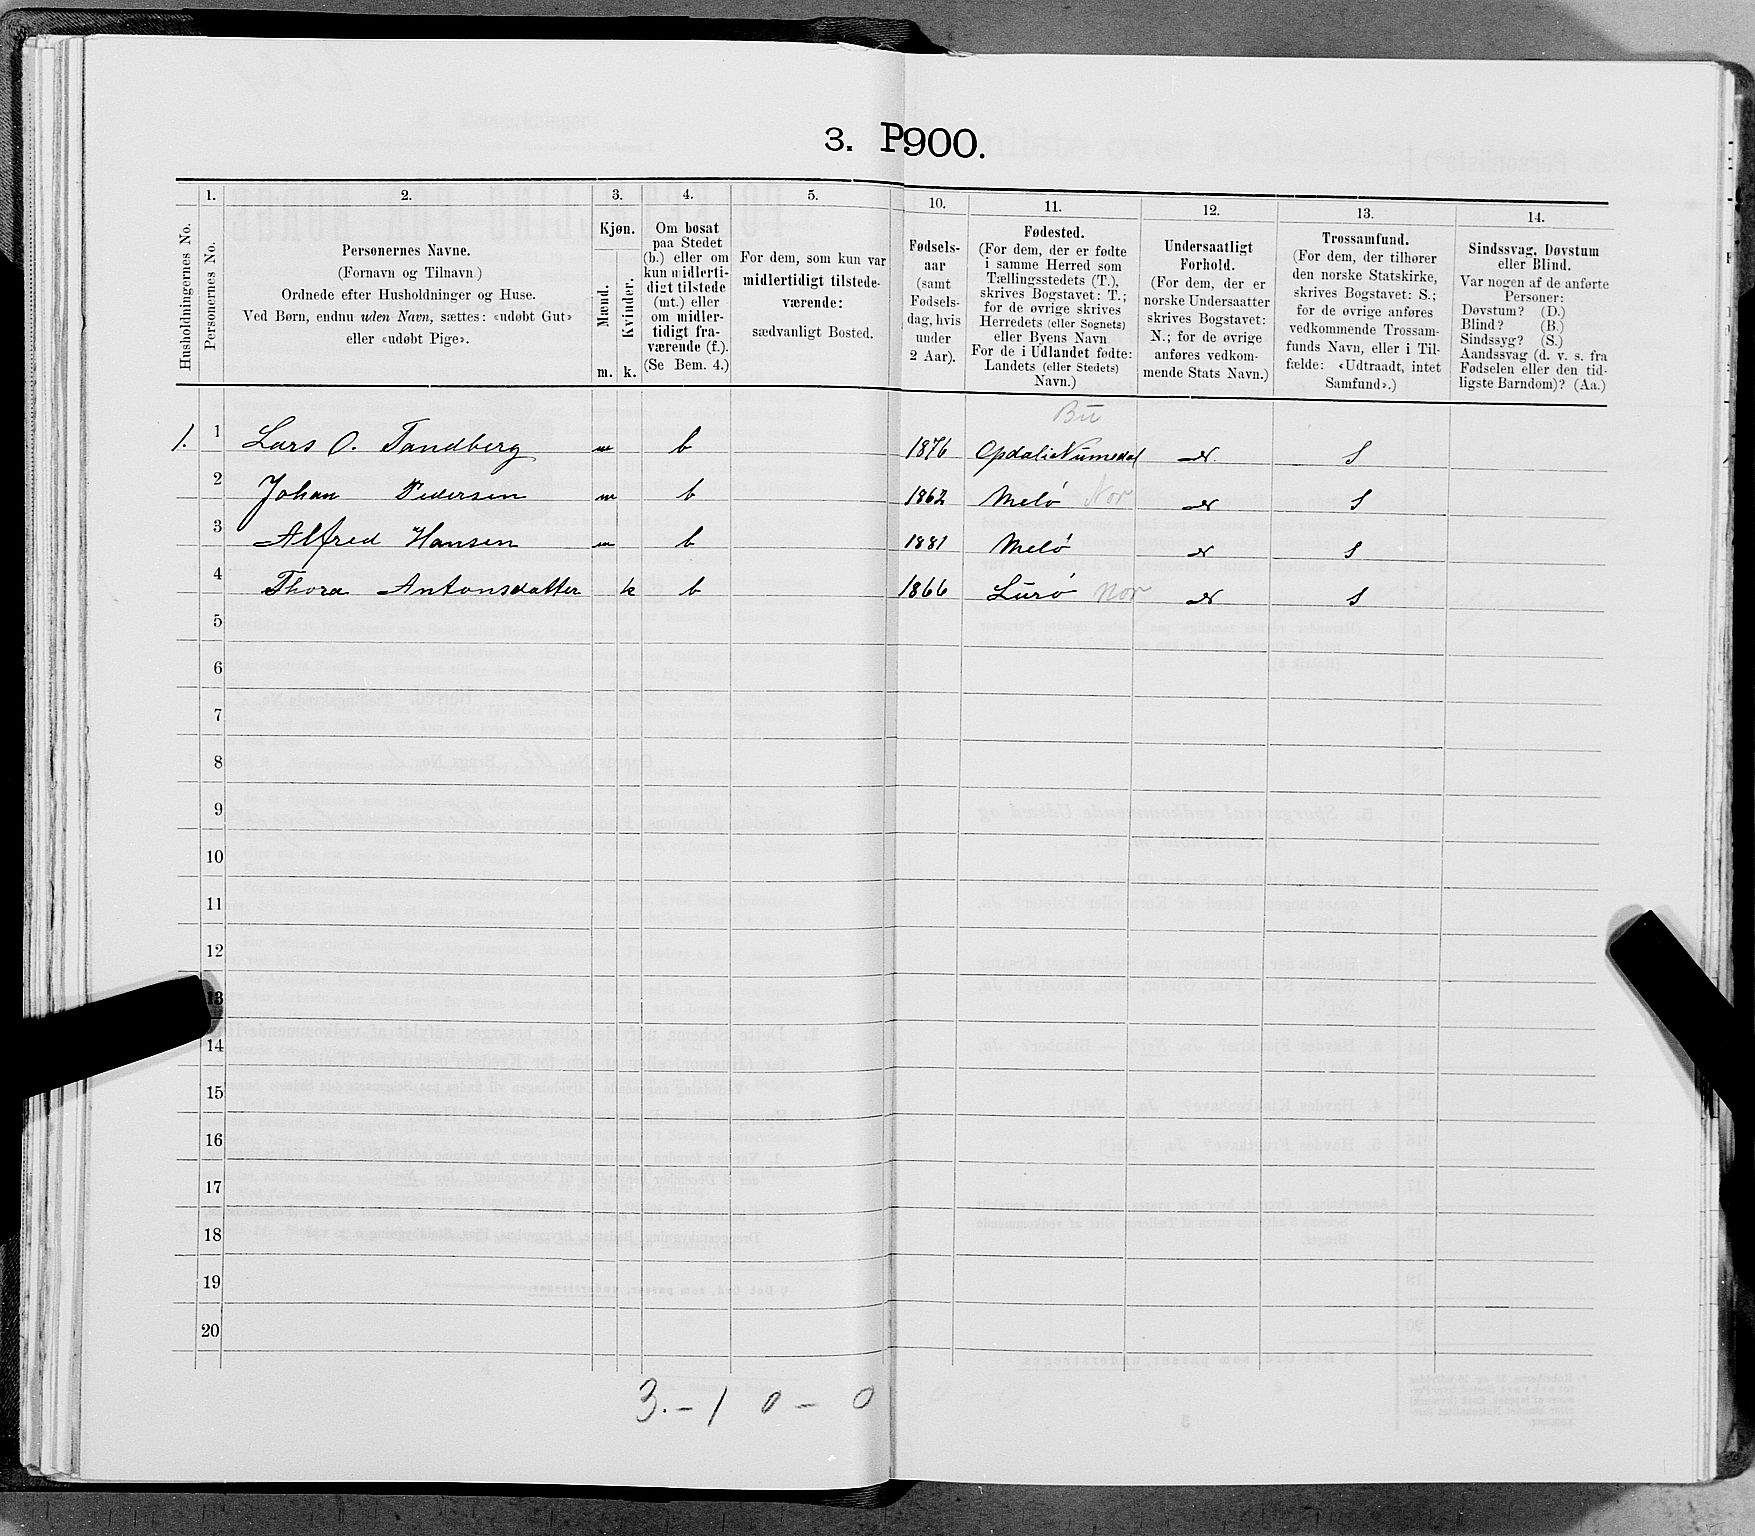 3. P900.
1. 2. 3. 4. 5. 10. 11. 12. 13. 14.
Husholdningernes No.
Personernes No.
Personernes Navne.
(Fornavn og Tilnavn)
Ordnede efter Husholdninger og Huse.
Ved Børn, endnu uden Navn, sættes: «udøbt Gut»
eller «udøbt Pige».
Kjøn.
Mænd.
Kvinder.
m. k.
Om bosat
paa Stedet
(b.) eller om
kun midlerti-
digt tilstede
(mt.) eller
om midler-
tidigt fra-
værende (f.).
(Se Bem. 4.)
For dem, som kun var
midlertidigt tilstede-
værende:
sædvanligt Bosted.
Fødsels-
aar
(samt
Fødsels-
dag, hvis
under
2 Aar).
Fødested.
(For dem, der er fødte
i samme Herred som
Tællingsstedets (T.),
skrives Bogstavet: T.;
for de øvrige skrives
Herredets (eller Sognets)
eller Byens Navn
For de i Udlandet fødte:
Landets (eller Stedets)
Navn.)
Undersaatligt
Forhold.
(For dem, der er
norske Undersaatter
skrives Bogstavet:
N.; for de øvrige
anføres vedkom-
mende Stats Navn.)
Trossamfund.
(For dem, der tilhører
den norske Statskirke,
skrives Bogstavet: S.;
for de øvrige anføres
vedkommende Trossam-
funds Navn, eller i Til-
fælde: «Udtraadt, intet
Samfund».)
Sindssvag, Døvstum
eller Blind.
Var nogen af de anførte
Personer:
Døvstum? (D.)
Blind? (B.)
Sindssyg? (S.)
Aandssvag (d. v. s. fra
Fødselen eller den tid-
ligste Barndom)? (Aa.)
Bu
1. 1 Lars O. Tandberg m b 1876 Opdal i Numedal N. S
2 Johan Pedersen m b 1862 Melø Nor N S
3 Alfred Hansen m b 1881 Melø N S
4 Thora Antonsdatter k b 1866 Lurø Nor N S
5
6
7
8
9
10
11
12
13
14
15
16
17
18
19
20
3. – 1 0 – 0